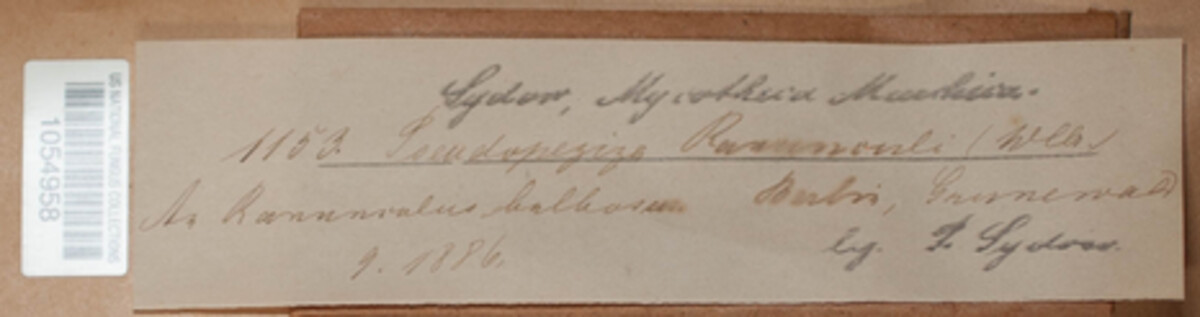 US NATIONAL FUNGUS COLLECTIONS
1054958
Sydow, Mycotheca Marchica.
1153. Pseudopeziza Ranunculi (Wllr.)
An Ranunculus bulbosus. Berlin, Grunewald
9. 1886. leg. P. Sydow.